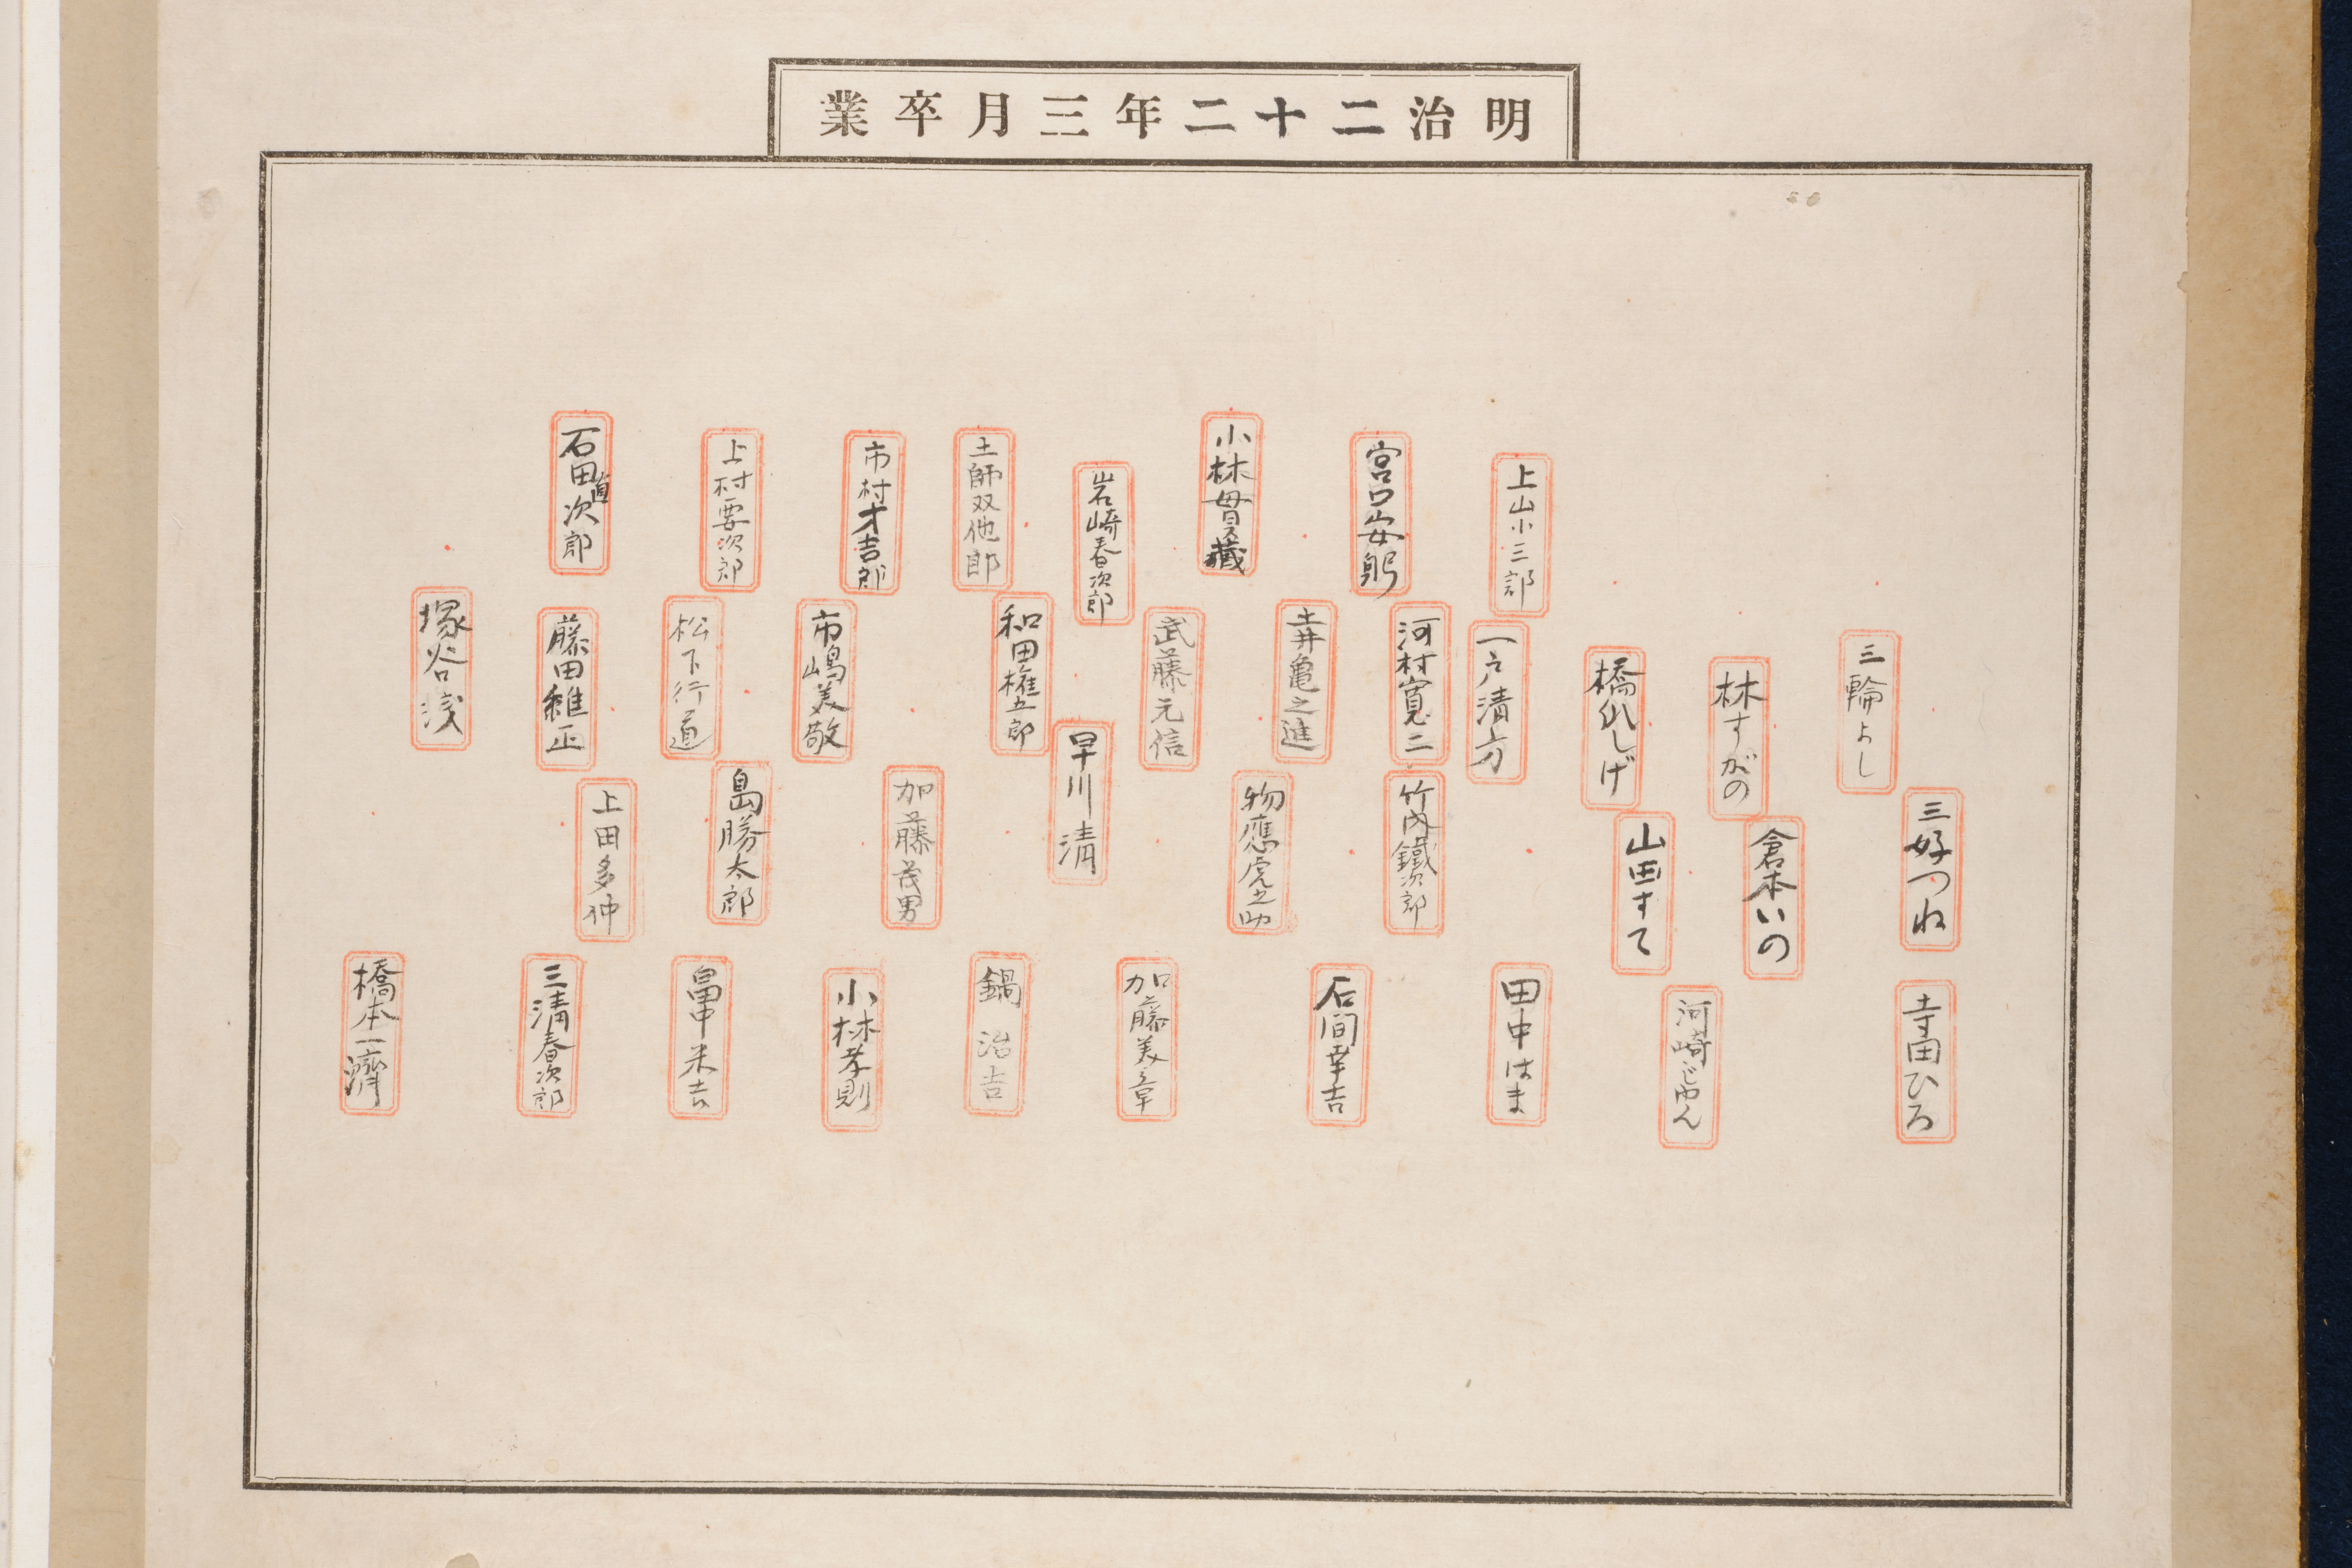 明治二十二年三月卒業
上山小三郎
宮口安躬
小林貫藏
岩崎春次郎
土師双他郎
市村才吉郎
上村要次郎
石田直次郎
三輪よし
林すがの
橋爪しげ
一戸清方
河村寛二
土井亀之進
武藤元信
和田権五郎
市嶋美敬
松下行道
藤田維正
塚谷浅
三好つね
倉本いの
山田すて
竹内鐵次郎
物應虎之助
早川清
加藤茂男
島勝太郎
上田多仲
寺田ひろ
河崎じゆん
田中はま
石間幸吉
加藤美章
鍋治吉
小林孝則
畠中米吉
三清春次郎
橋本一濟